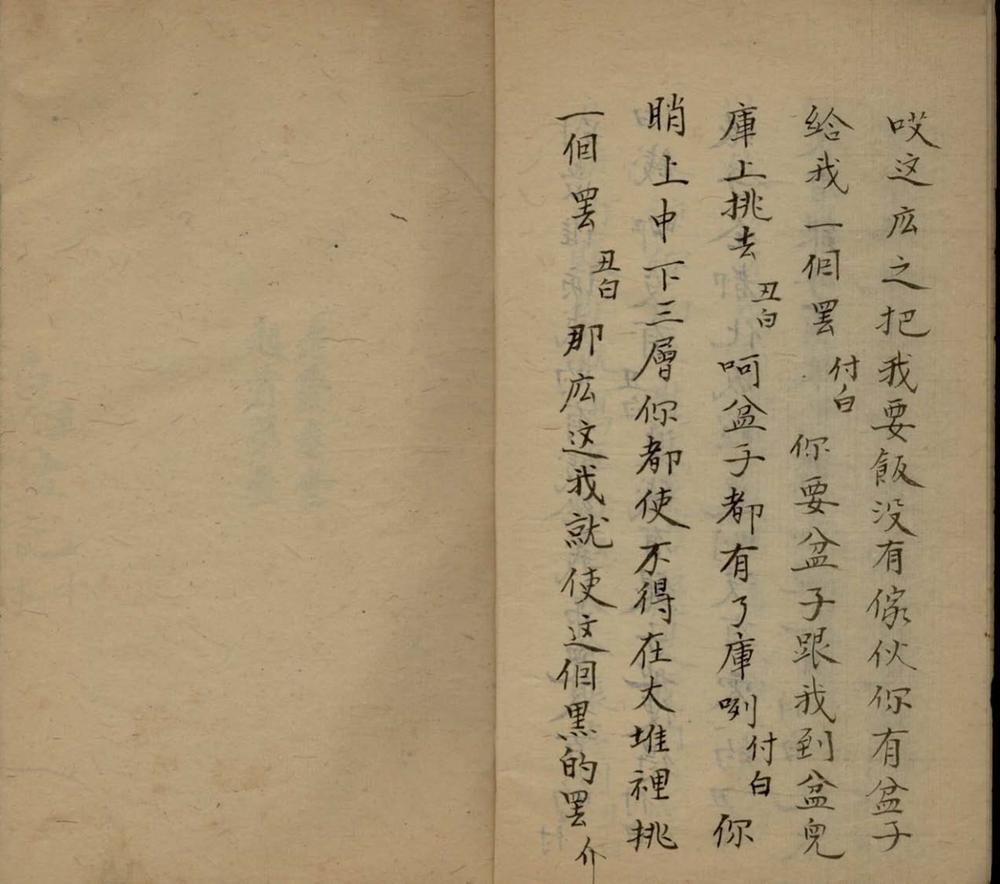 哎这広之把我要飯没有傢伙你有盆子
給我一個罢付白你要盆子跟我到盆兒
庫上挑去丑白呵盆子都有了庫咧付白你
睄上中下三層你都使不得在大堆裡挑
一個罢丑白那広这我就使这個黑的罢介